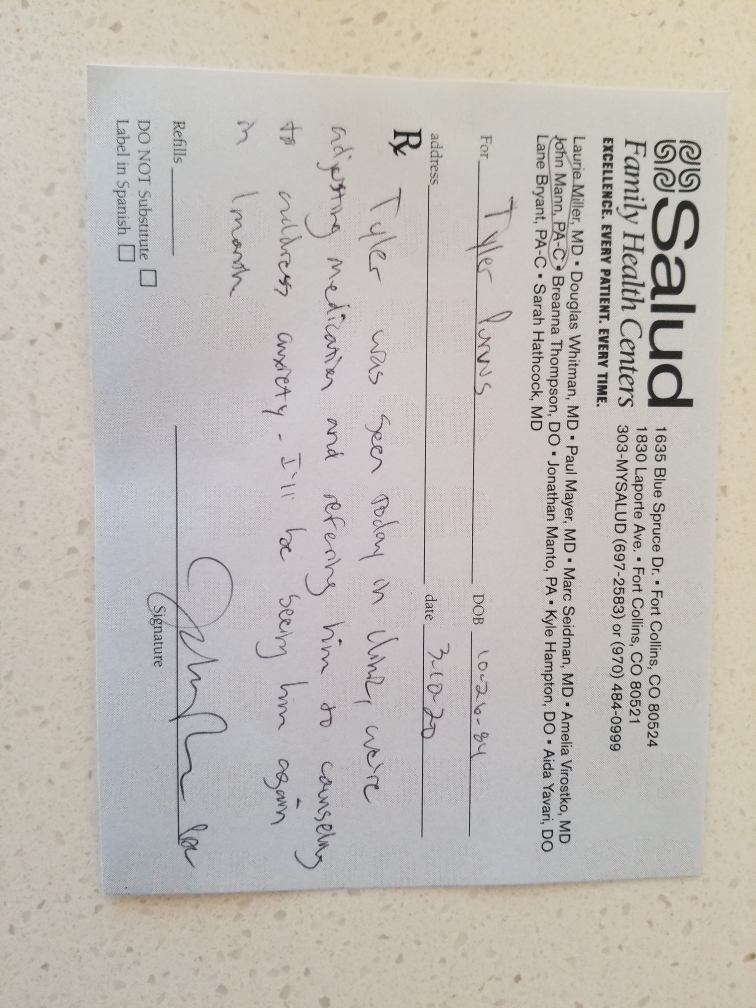 Salud
Family Health Centers
EXCELLENCE. EVERY PATIENT. EVERY TIME.
1635 Blue Spruce Dr. • Fort Collins, CO 80524
1830 Laporte Ave. • Fort Collins, CO 80521
303-MYSALUD (697-2583) or (970) 484-0999
Laurie Miller, MD • Douglas Whitman, MD • Paul Mayer, MD • Marc Seidman, MD • Amelia Virostko, MD
John Mann, PA-C • Breanna Thompson, DO • Jonathan Manto, PA • Kyle Hampton, DO • Aida Yavari, DO
Lane Bryant, PA-C • Sarah Hathcock, MD
For Tyler DOB 10-26-84
address date 3-10-20
Rx Tyler was seen today in clinic, we're
adjusting medication and refering him to counseling
to address anxiety - I'll be seeing him again
in 1 month
Refills
Signature
DO NOT Substitute
Label in Spanish